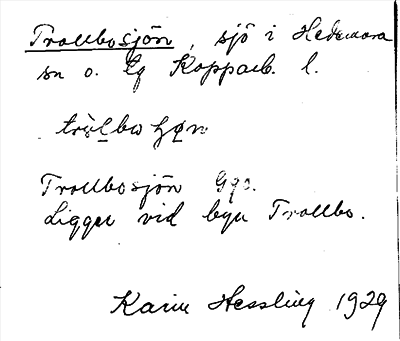 Trollbosjön, sjö i Hedemora
sn o. lg Kopparb. l.
Trollbosjön Gqo.
Ligger vid byn Trollbo.
Karin Hessling 1929